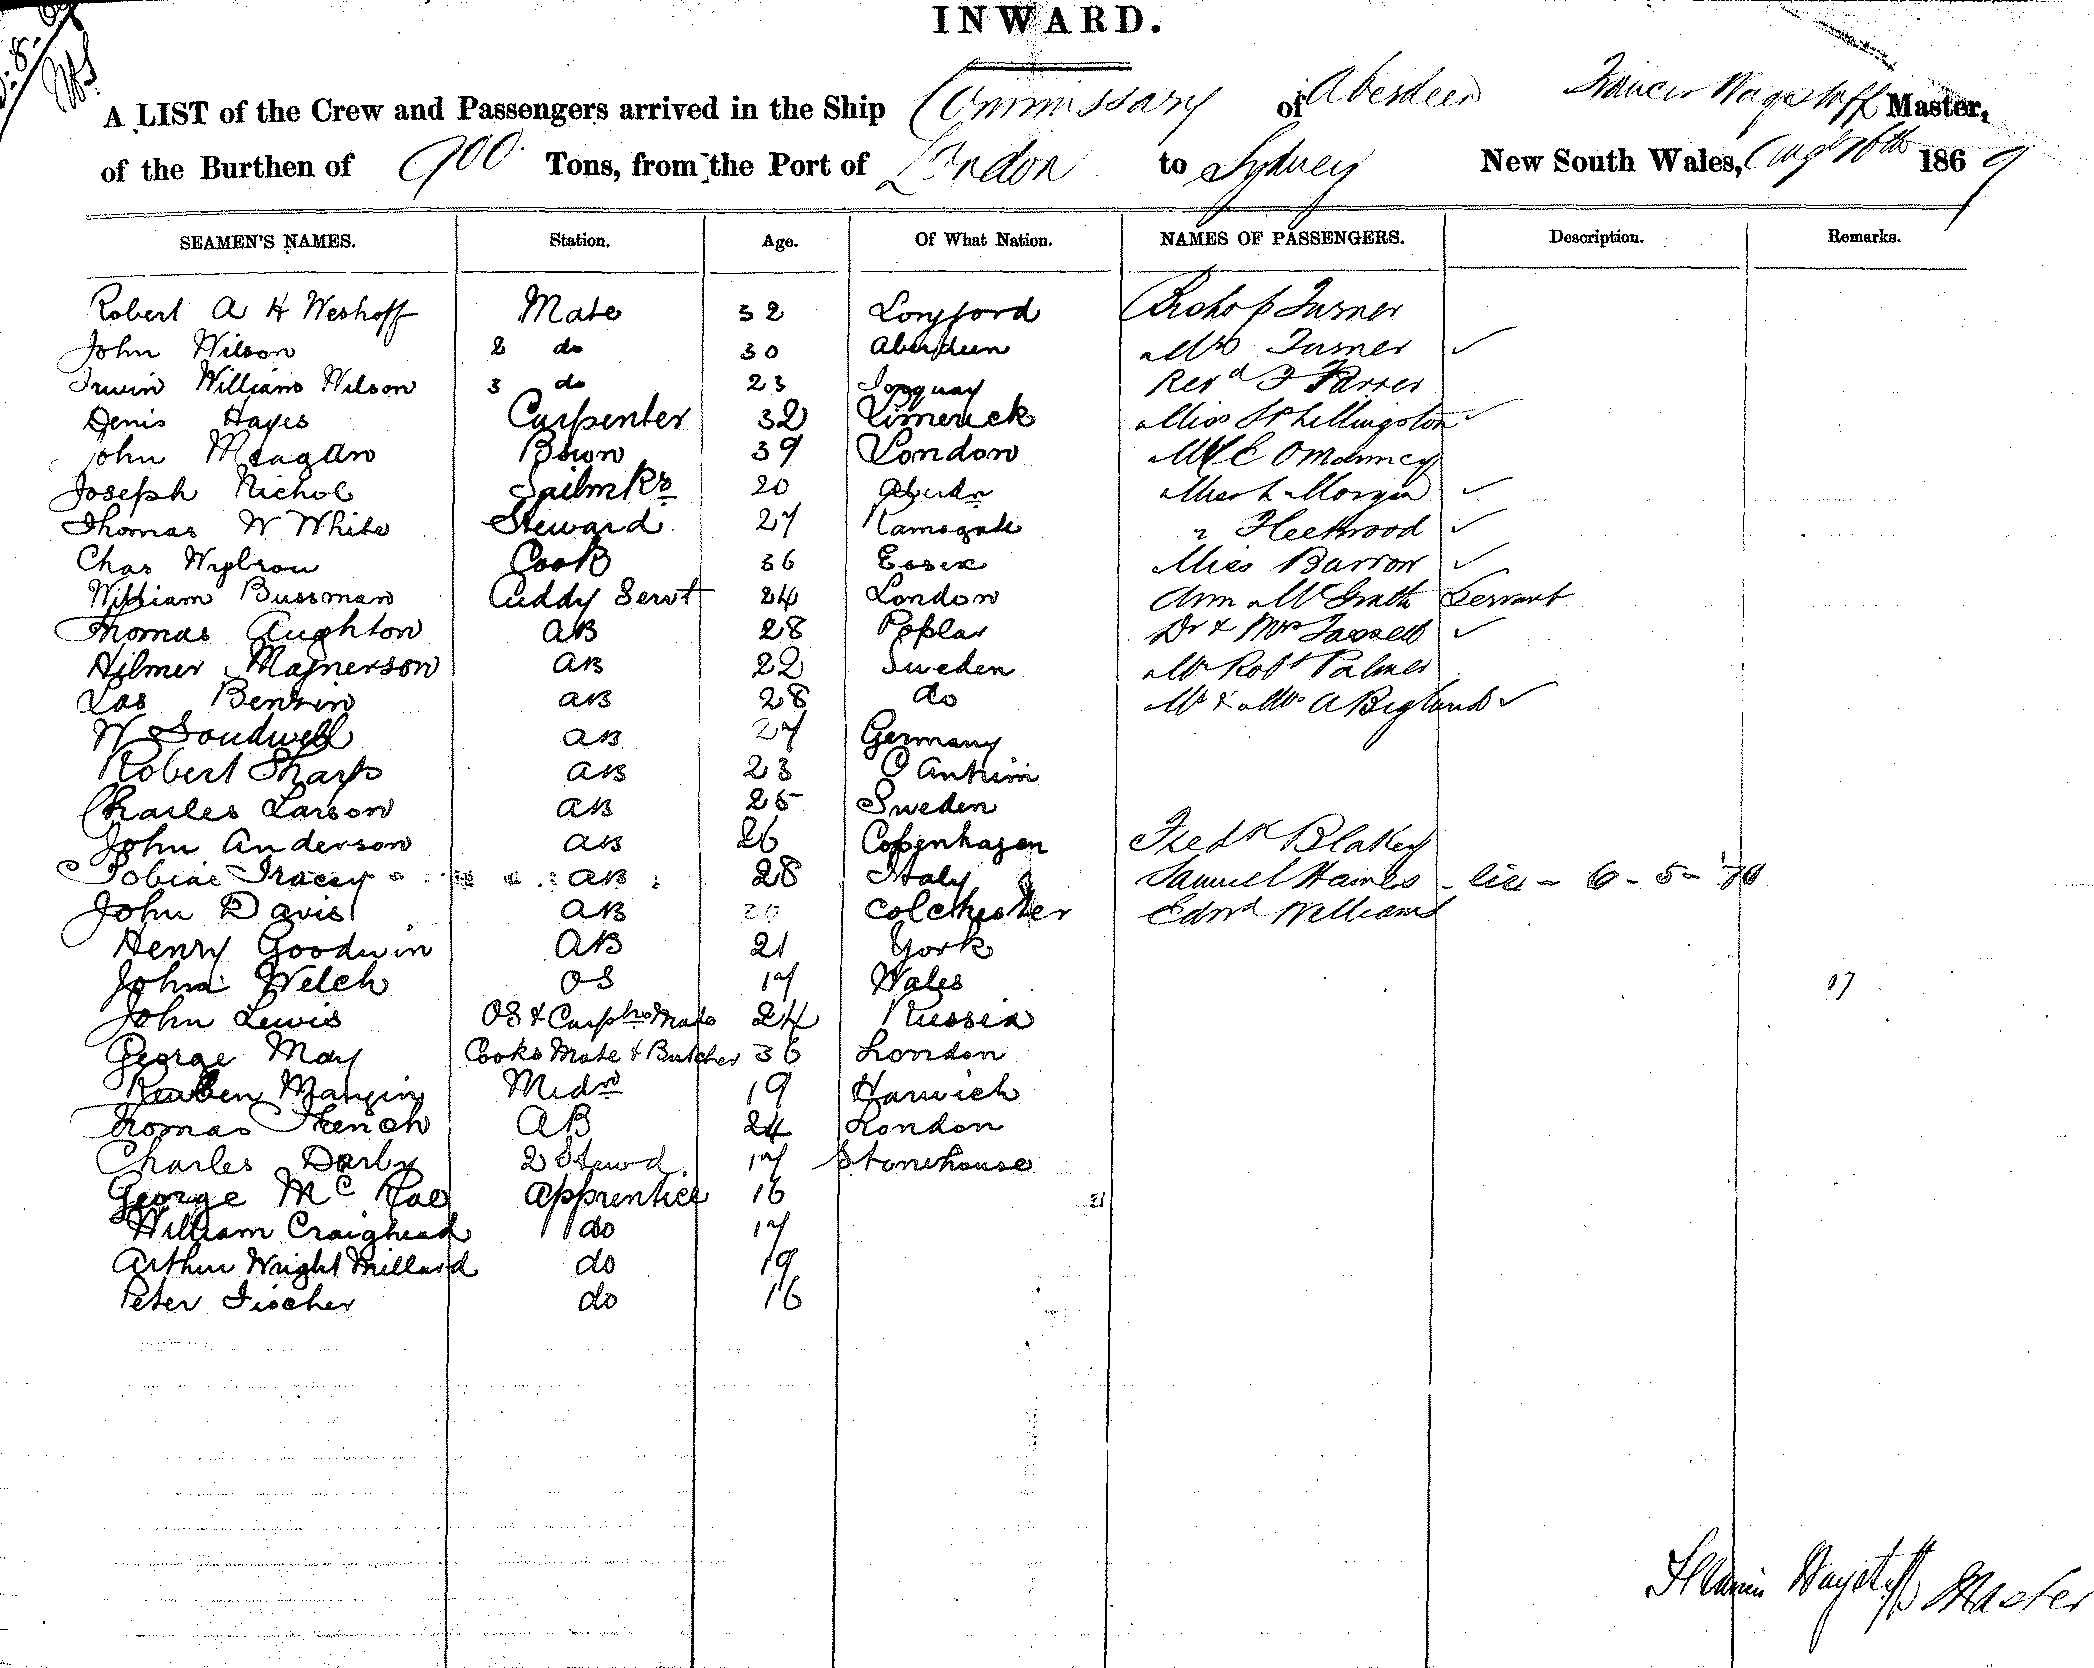 INWARD.
A LIST of the Crew and Passengers arrived in the Ship Commissary of Aberdeen Francis Wagstaff Master,
of the Burthen of 900 Tons, from the Port of London to Sydney New South Wales, Augt 16th 1869
SEAMEN'S NAMES. Station. Age. Of What Nation. NAMES OF PASSENGERS. Description. Remarks.
Robert A H Weshoff Mate 32 Longford Bishop Turner
John Wilson 2 do 30 Aberdeen Mrs Turner ✓
Irwin Williams Wilson 3 do 23 Torquay Revd F
Denis Hayes Carpenter 32 Limerick Miss ✓
John Meagan Bsun 39 London Mr C
Joseph Nichol Sailmkr 20 Aberdn Miss L Morgan ✓
Thomas W White Steward 27 Ramsgate " Fleetwood ✓
Chas Cook 36 Essex Miss Barron ✓
William Bussman Cuddy Servt 24 London Ann McGrath Servant
Thomas Aughton AB 28 Poplar Dr & Mrs ✓
Hilmer Magnerson AB 22 Sweden Mr Robt Palmer
Las Bensin AB 28 do Mr & Mrs A Bigland ✓
W Soudwell AB 27 Germany
Robert Sharp AB 23 C Antrim
Charles Larson AB 25 Sweden
John Anderson AB 26 Copenhagen Fredk Blakey
Tobias Tracey AB 28 Italy Samuel Haines - lic - 6 - 5 - '70
John Davis AB 20 Colchester Edwd Williams
Henry Goodwin AB 21 York
John Welch OS 17 Wales
John Lewis OS & Carptrs Mate 24 Russia
George May Cooks Mate & Butcher 36 London
Reuben Mangin Midn 19 Harwich
Thomas French AB 24 London
Charles Darby 2 Stewd. 17 Stonehouse
George Mc Rae Apprentice 16
William Craighead do 17
Arthur Wright Millard do 19
Peter Fischer do 16
Francis Wagstaff Master